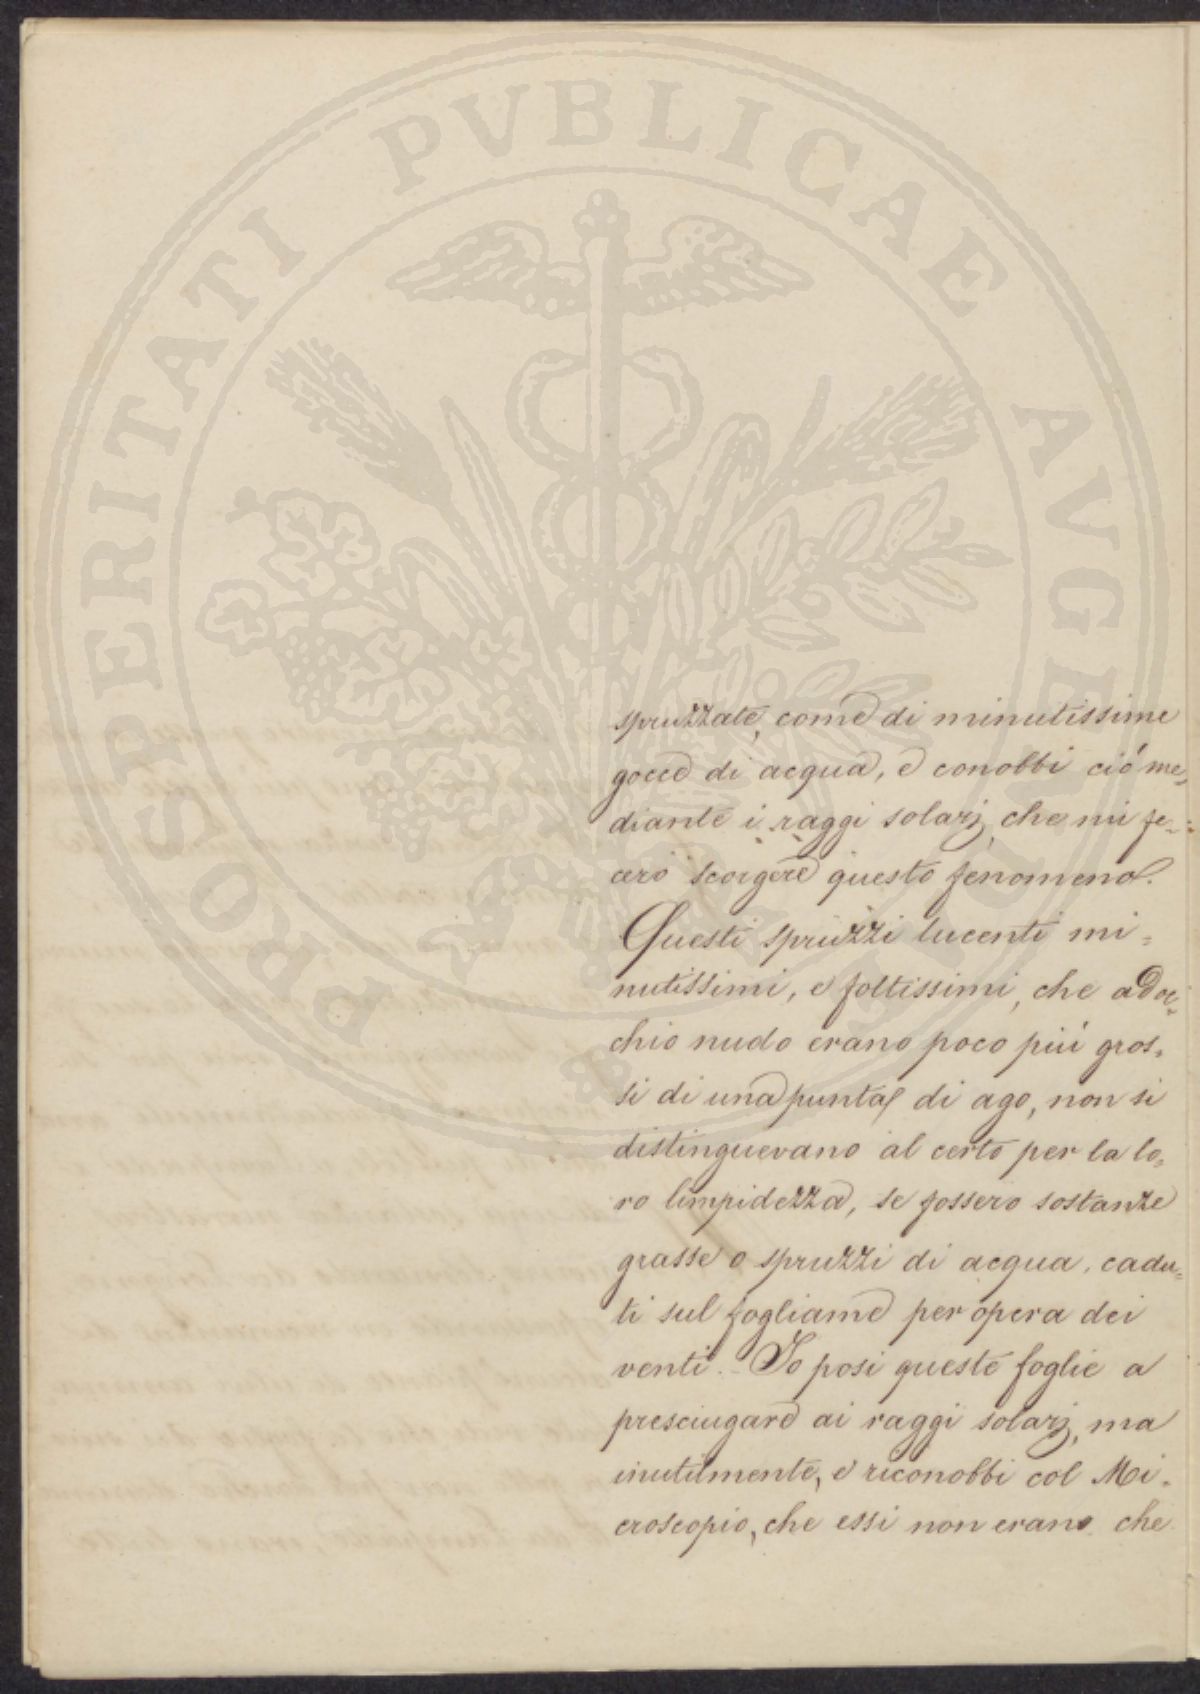 PROSPERITATI PVBLICAE AVGENDAE
spruzzate, come di minutissime
gocce di acqua, e conobbi ció me=
diante i raggi solarj, che mi fe=
cero scorgere questo fenomeno.
Questi spruzzi lucenti mi=
nutissimi, e foltissimi, che ad oc=
chio nudo erano poco piú gros=
si di una punta di ago, non si
distinguevano al certo per la lo=
ro limpidezza, se fossero sostanze
grasse o spruzzi di acqua, cadu=
ti sul fogliame per opera dei
venti. Io posi queste foglie a
presciugare ai raggi solarj, ma
inutilmente, e riconobbi col Mi=
croscopio, che essi non erano che